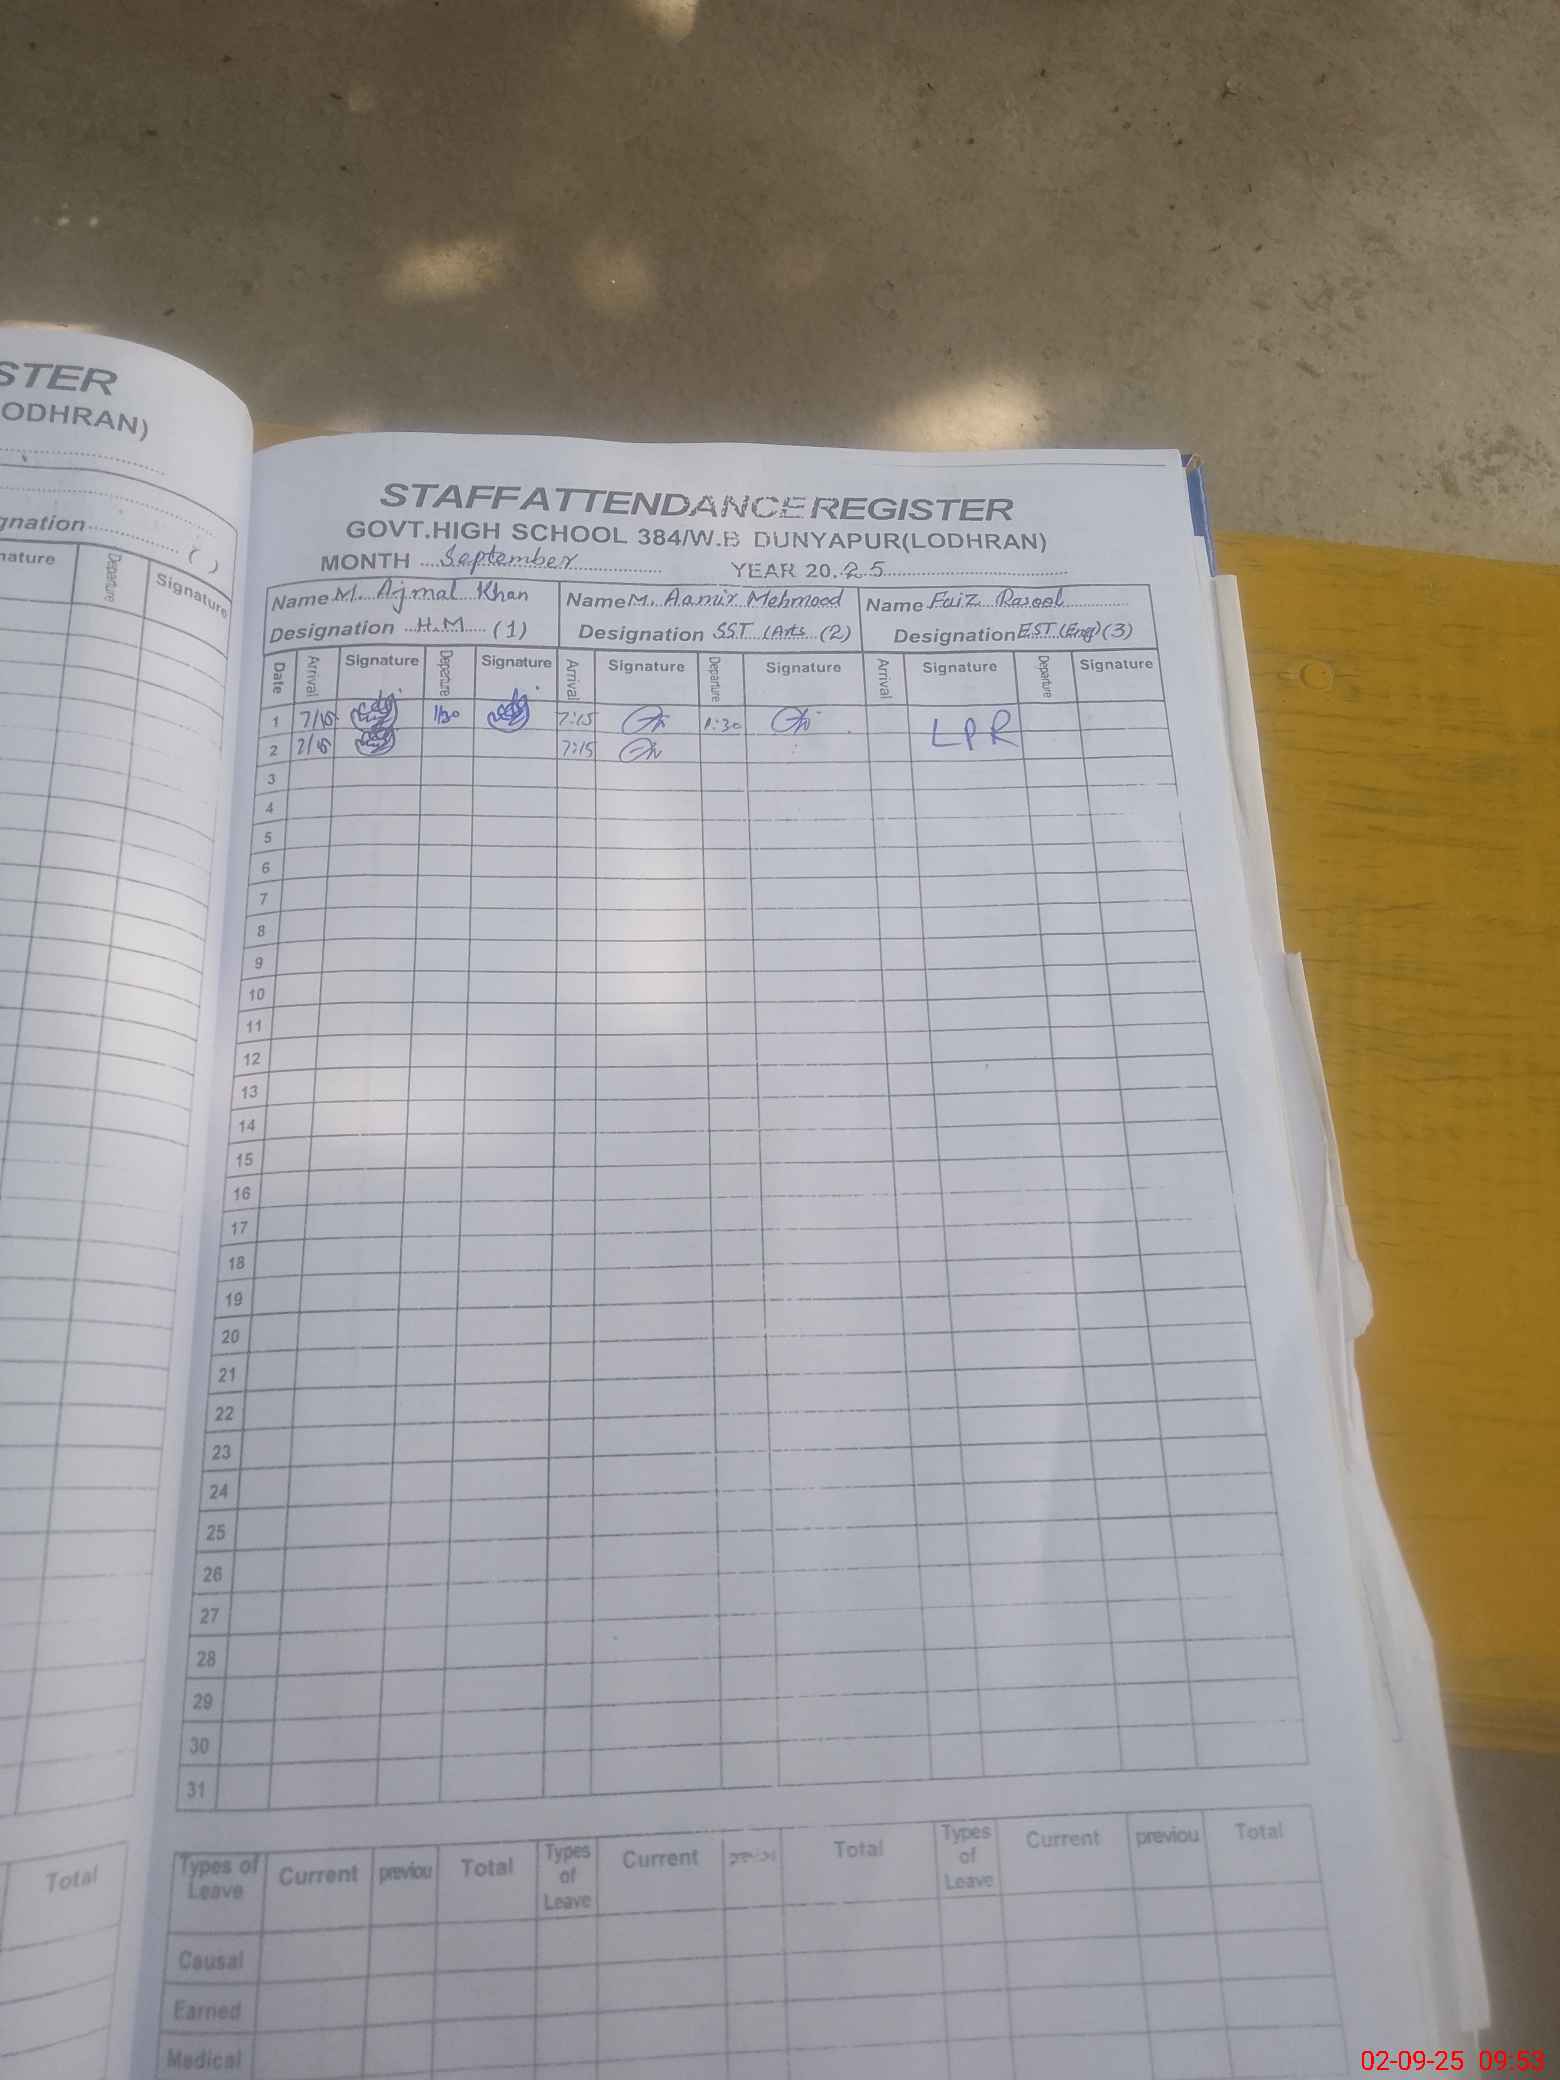 STER
LODHRAN)
gnation ( )
nature Departure Signature
Total
STAFF ATTENDANCE REGISTER
GOVT.HIGH SCHOOL 384/W.B DUNYAPUR(LODHRAN)
MONTH September YEAR 20.25
Name M. Ajmal Khan Name M. Aamir Mehmood Name Faiz Rasool
Designation H.M (1) Designation SST (Arts (2) Designation EST (Eng) (3)
Date Arrival Signature Departure Signature Arrival Signature Departure Signature Arrival Signature Departure Signature
1 7/15 1/30 7:15 1:30 LPR
2 7/15 7:15
3
4
5
6
7
8
9
10
11
12
13
14
15
16
17
18
19
20
21
22
23
24
25
26
27
28
29
30
31
Types of Leave Current previou Total Types of Leave Current Total Types of Leave Current previou Total
Causal
Earned
Medical
02-09-25 09:53